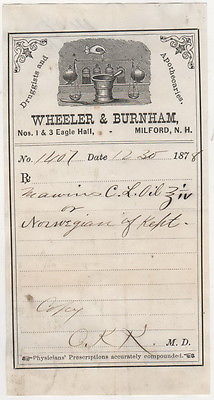 Druggists and Apothecaries.
WHEELER & BURNHAM,
Nos. 1 & 3 Eagle Hall, - MILFORD, N. H.
No. 1407 Date 12-30 1878
℞
C. L. Oil ℥iv
or
Norwegian if Kept.
Copy
M. D.
Physicians' Prescriptions accurately compounded.